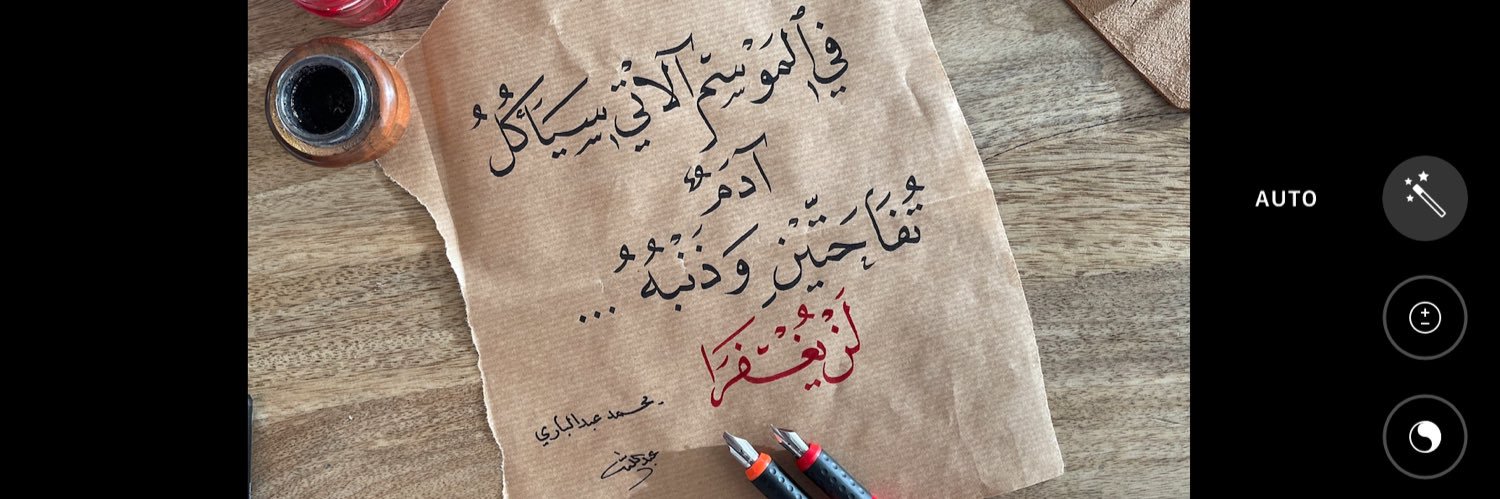 في ٱلمَوْسِمِ ٱلآتْي سَيَأكُلُ
آدَمٌ
تُفَاحَتَّيْنِ وَذَنْبُهُ ...
لَنْ يُغْفَرَا
محمد عبدالباري
AUTO